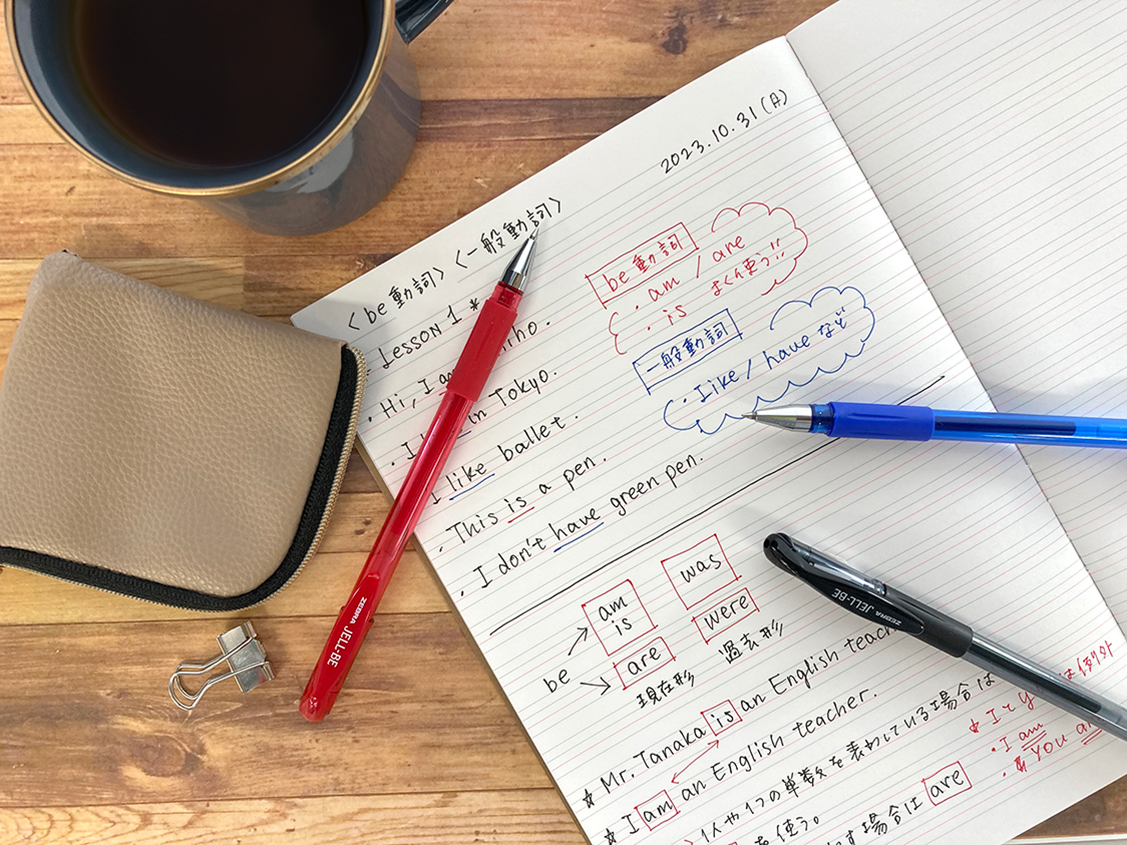 2023.10.31(火)
<be動詞> <一般動詞>
Lesson 1 *
・Hi, I am
・I in Tokyo.
I like ballet.
・This is a pen.
・I don't have green pen.
be動詞
・am / are
・is よく使う!!
一般動詞
・like / have など
be
am
is
are
現在形
was
were
過去形
☆ Mr. Tanaka is an English teach
☆ I am an English teacher.
1人や1つの単数を表わしている場合は
を使う。
場合は are
☆ I と は例外
・I am
・You
ZEBRA JELL-BE
ZEBRA JELL-BE